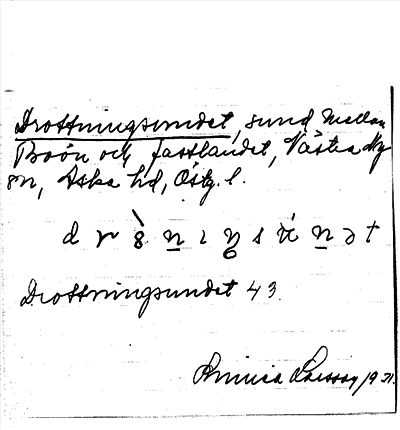 Drottningsundet, sund mellan
Boön och fastlandet, Västra Ny
sn, Aska hd, Östg. l.
Drottningsundet 43.
1931.